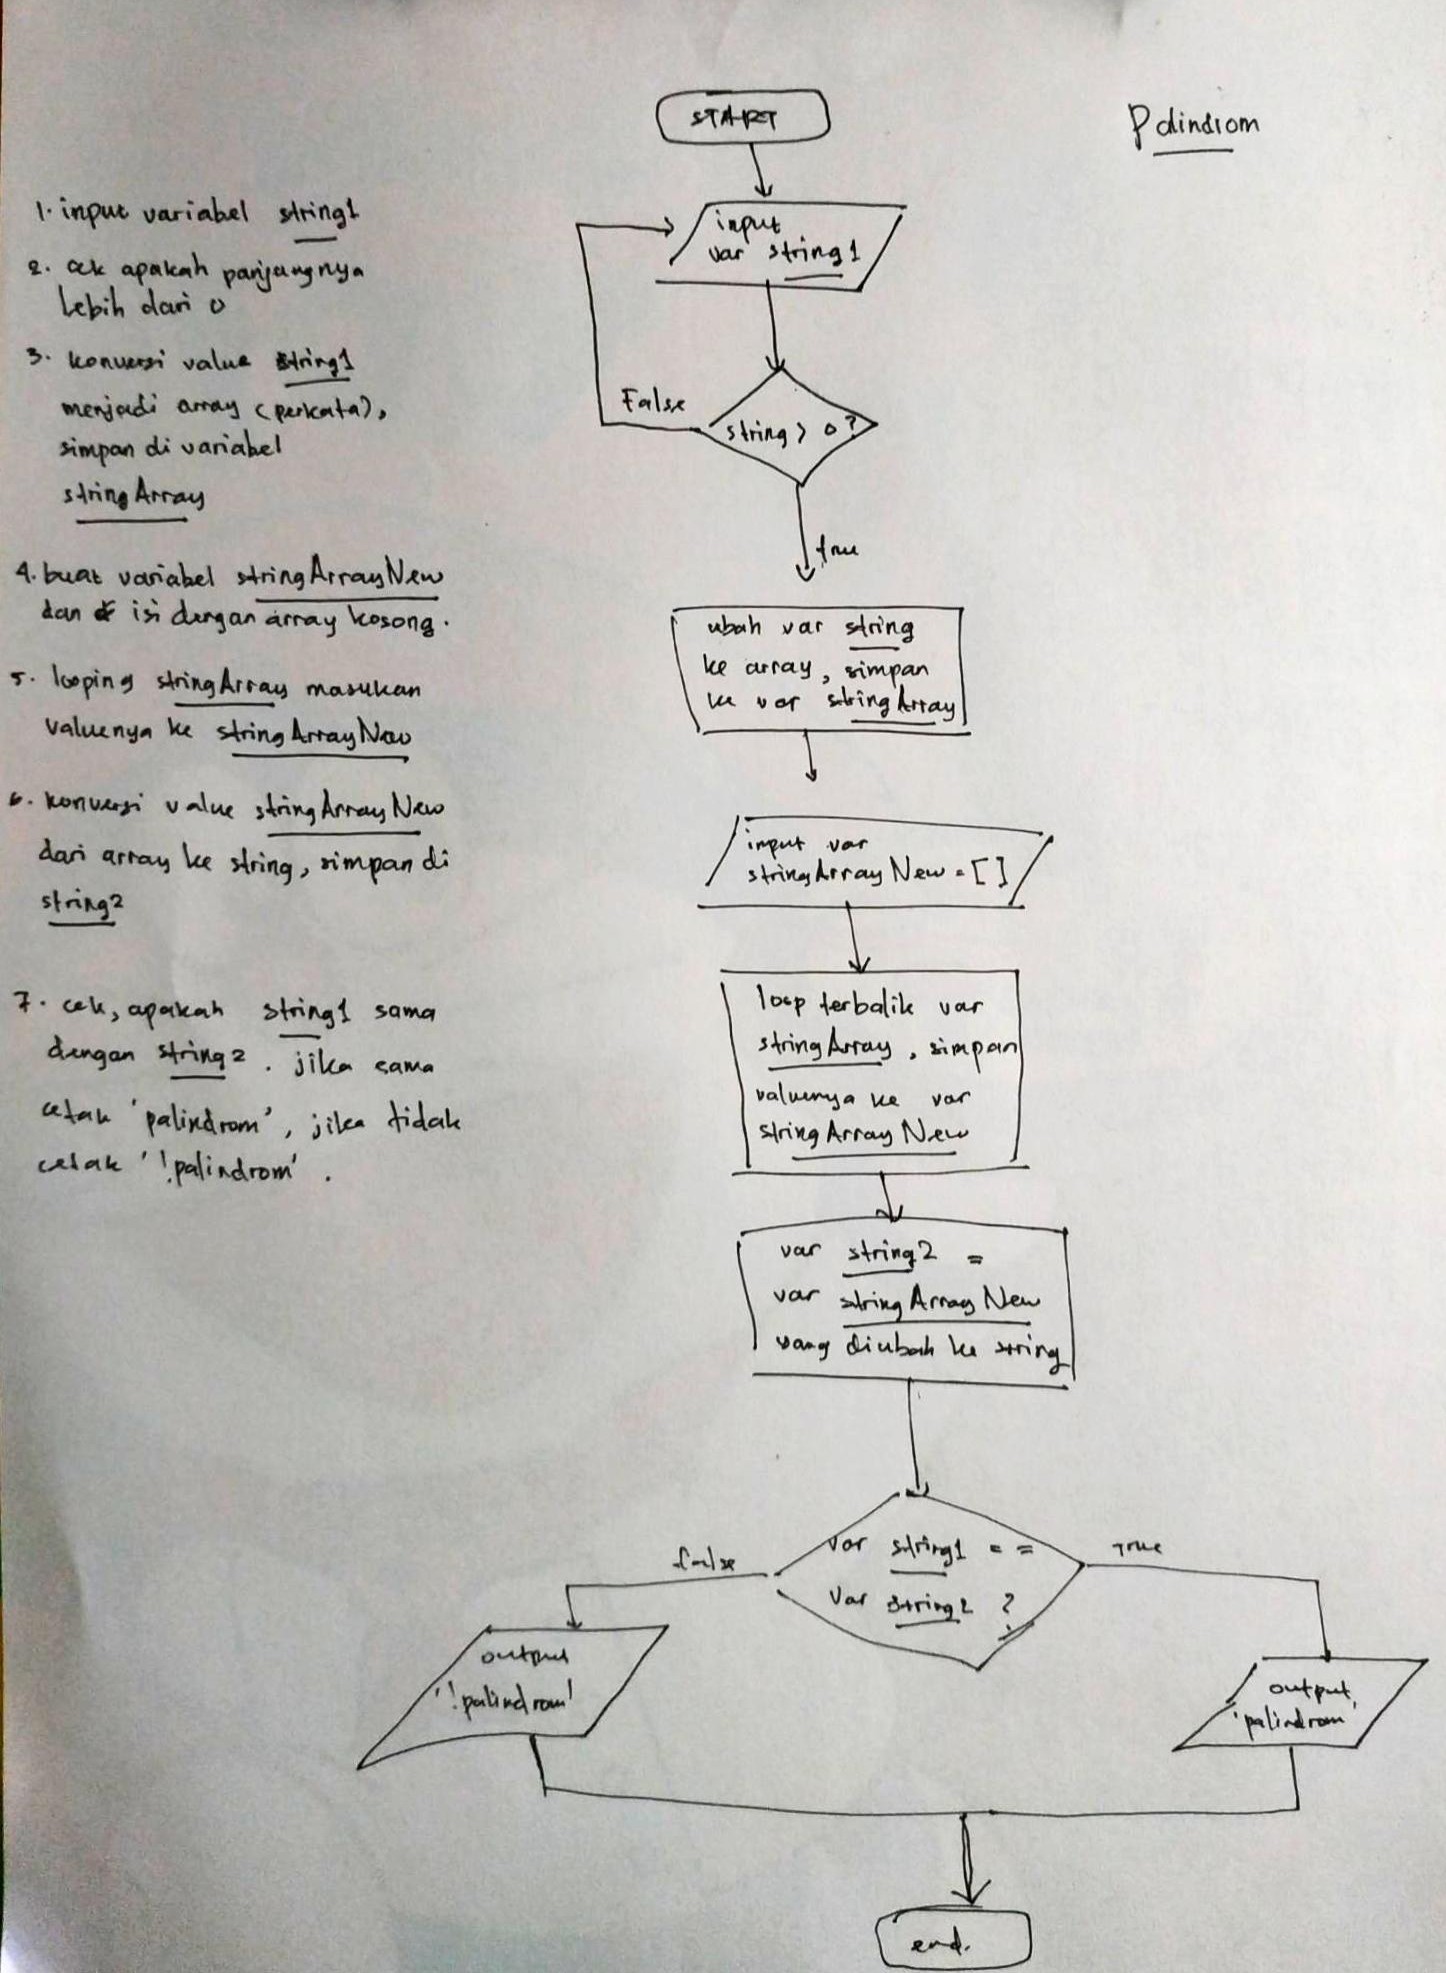 Palindrom
1. input variabel string1
2. cek apakah panjangnya
lebih dari 0
3. konversi value string1
menjadi array (perkata),
simpan di variabel
stringArray
4. buat variabel stringArrayNew
dan isi dengan array kosong.
5. looping stringArray masukan
valuenya ke stringArrayNew
6. konversi value stringArrayNew
dari array ke string, simpan di
string2
7. cek, apakah string1 sama
dengan string2. jika sama
cetak 'palindrom', jika tidak
cetak '!palindrom'.
START
input
var string1
string > 0?
False
true
ubah var string
ke array, simpan
ke var stringArray
input var
stringArrayNew = []
loop terbalik var
stringArray, simpan
valuenya ke var
stringArrayNew
var string2 =
var stringArrayNew
yang diubah ke string
var string1 ==
var string2 ?
false
True
output
'!palindrom'
output
'palindrom'
end.